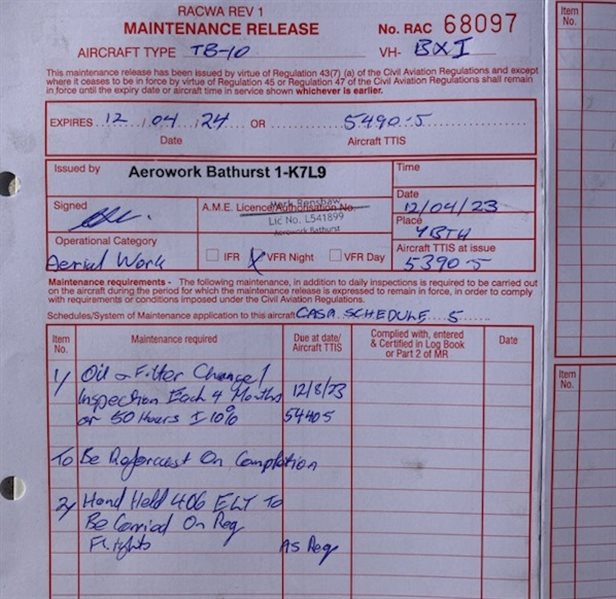 RACWA REV 1
MAINTENANCE RELEASE
No. RAC 68097
AIRCRAFT TYPE TB-10
VH- BXI
This maintenance release has been issued by virtue of Regulation 43(7) (a) of the Civil Aviation Regulations and except
where it ceases to be in force by virtue of Regulation 45 or Regulation 47 of the Civil Aviation Regulations shall remain
in force until the expiry date or aircraft time in service shown whichever is earlier.
EXPIRES 12 / 04 / 24 OR 5490.5
Date Aircraft TTIS
Issued by Aerowork Bathurst 1-K7L9
Time
Signed
A.M.E. Licence/Authorisation No.
Mark Renshaw
Lic No. L541899
Aerowork Bathurst
Date
12/04/23
Place
YBTH
Operational Category
Aerial Work
IFR X VFR Night VFR Day
Aircraft TTIS at issue
5390.5
Maintenance requirements - The following maintenance, in addition to daily inspections is required to be carried out
on the aircraft during the period for which the maintenance release is expressed to remain in force, in order to comply
with requirements or conditions imposed under the Civil Aviation Regulations.
Schedules/System of Maintenance application to this aircraft CASA SCHEDULE 5
Item No.
Maintenance required
Due at date/ Aircraft TTIS
Complied with, entered & Certified in Log Book or Part 2 of MR
Date
1/ Oil & Filter Change /
Inspection Each 4 Months 12/8/23
or 50 Hours ± 10% 5440.5
To Be On Completion
2/ Hand Held 406 ELT To
Be Carried On Req
Flights As Req
Item
No.
Item
No.